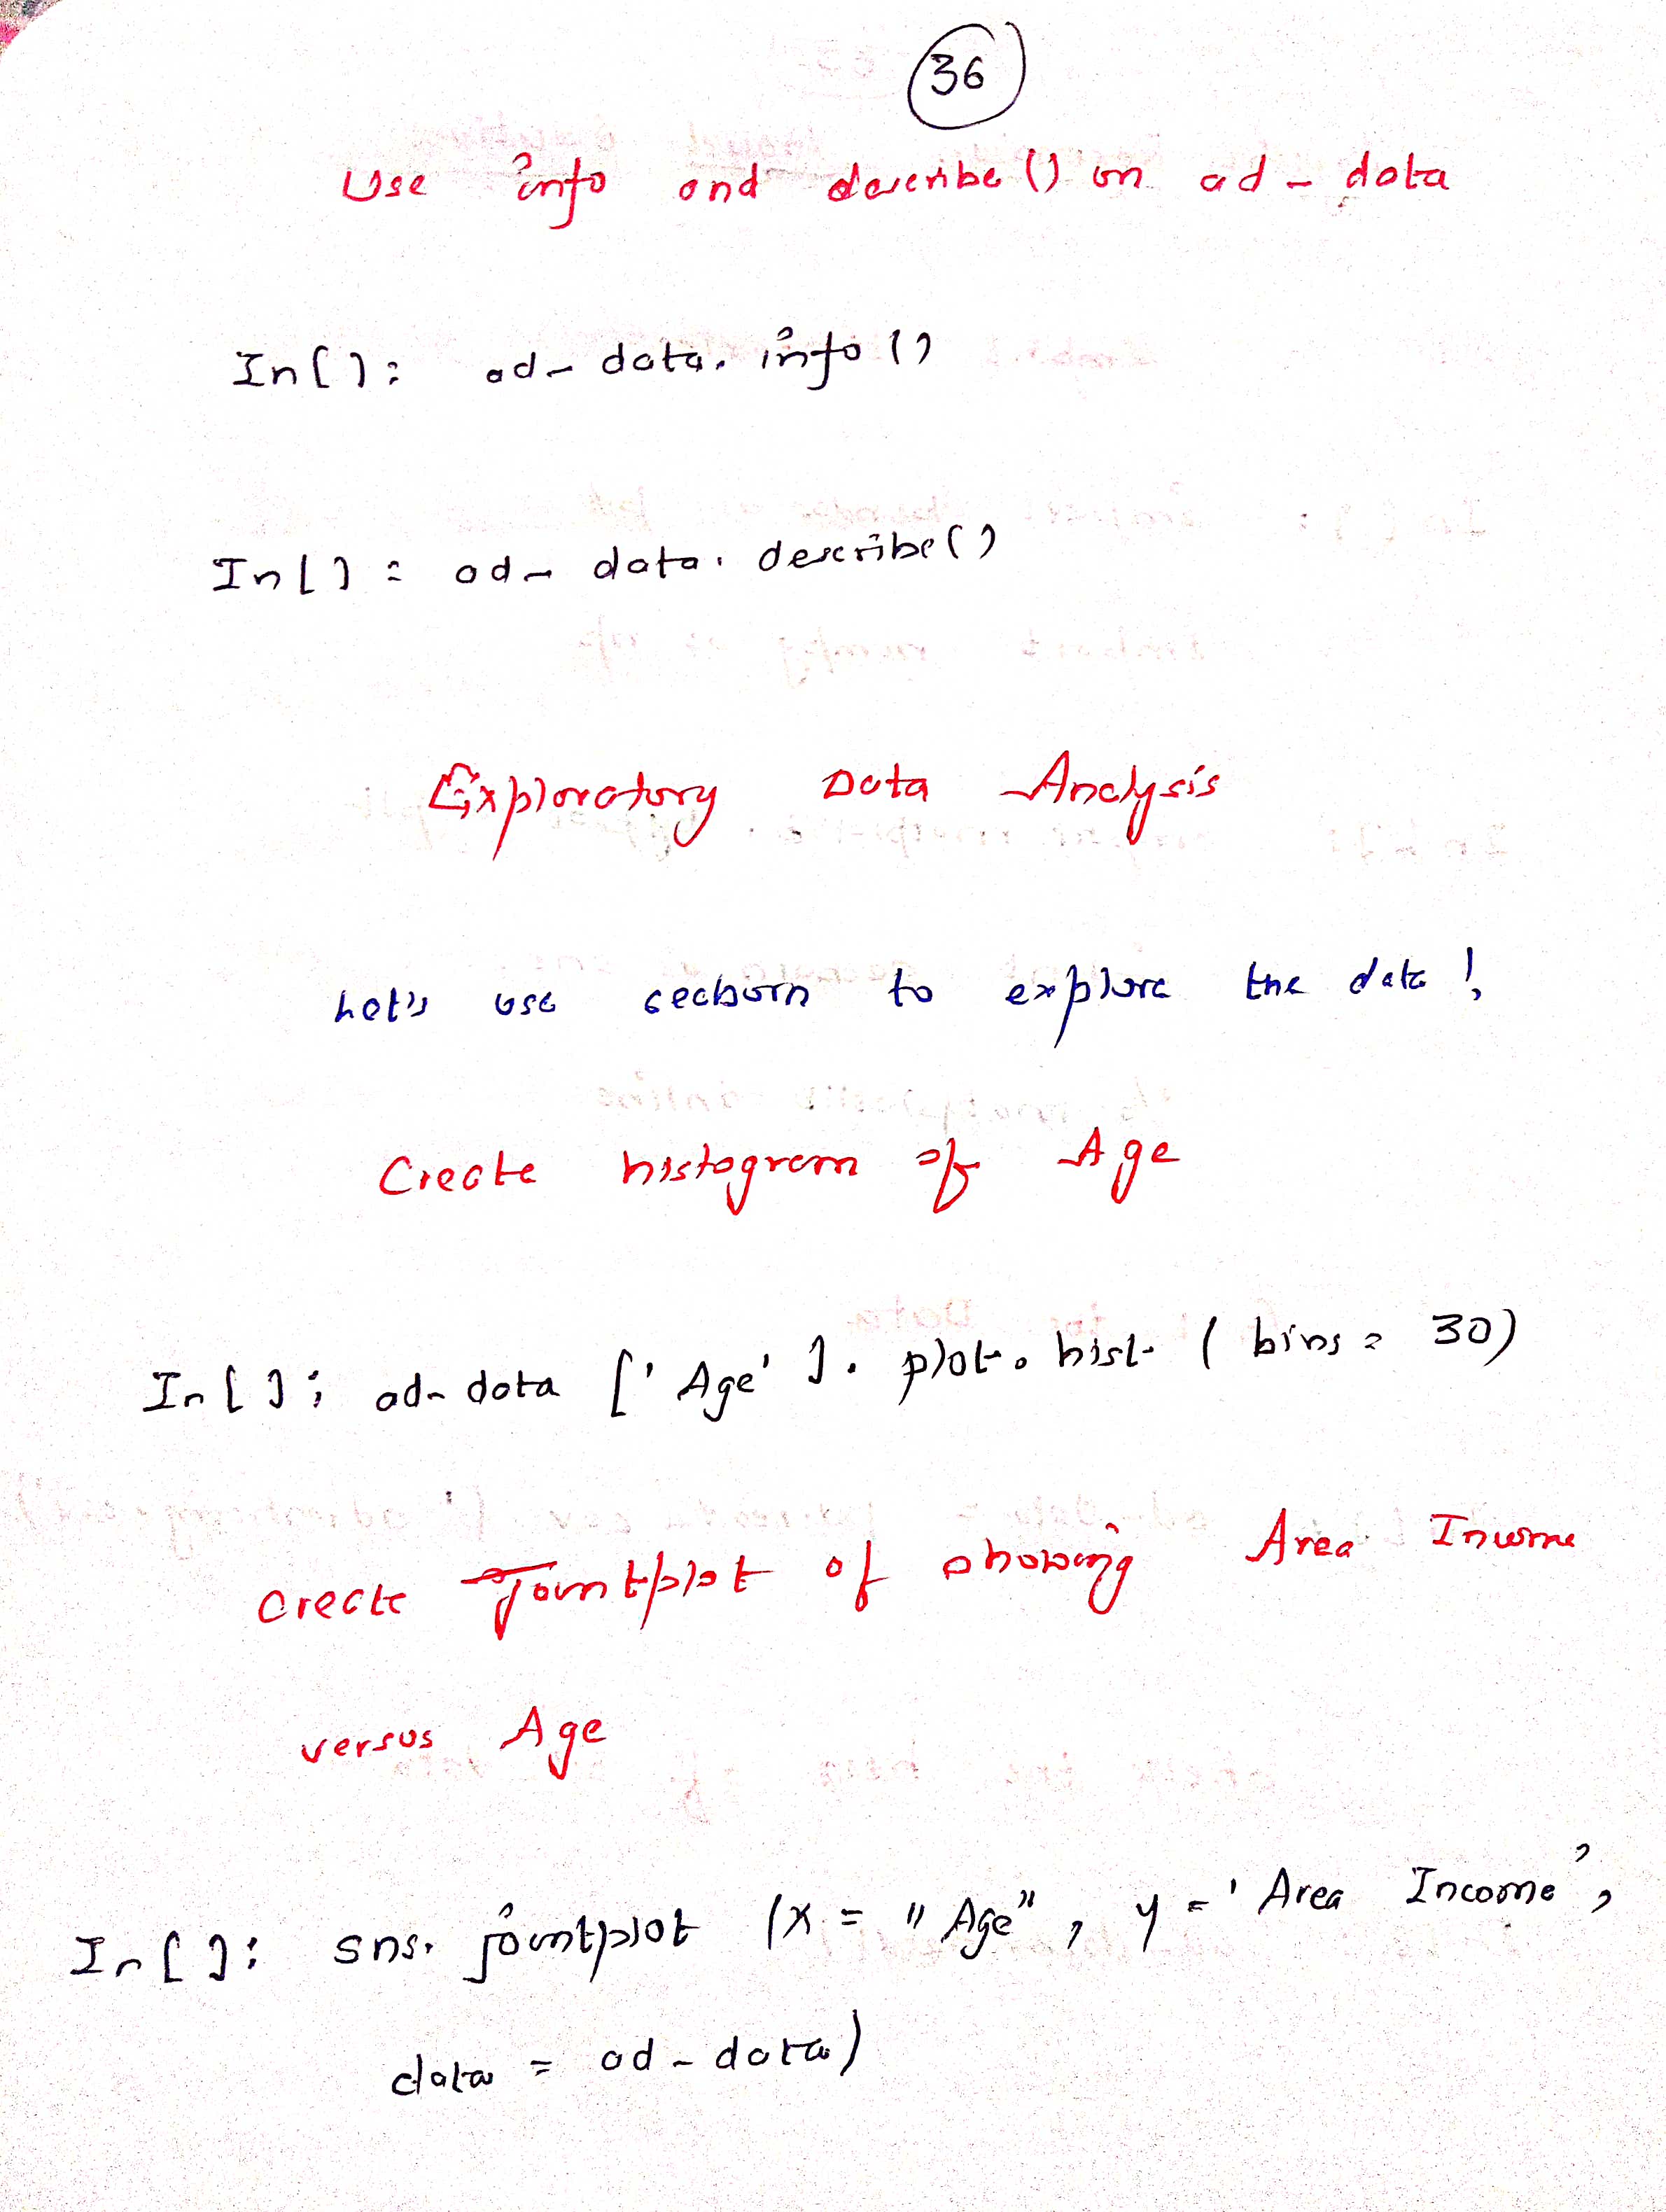 36
Use info and describe() on ad_data
In[]: ad_data.info()
In[]: ad_data.describe()
Exploratory Data Analysis
Let's use seaborn to explore the data!
Create histogram of Age
In[]: ad_data ['Age'].plot.hist (bins = 30)
Create Jointplot of showing Area Income
versus Age
In[]: sns.jointplot (x = "Age", y = 'Area Income',
data = ad_data)